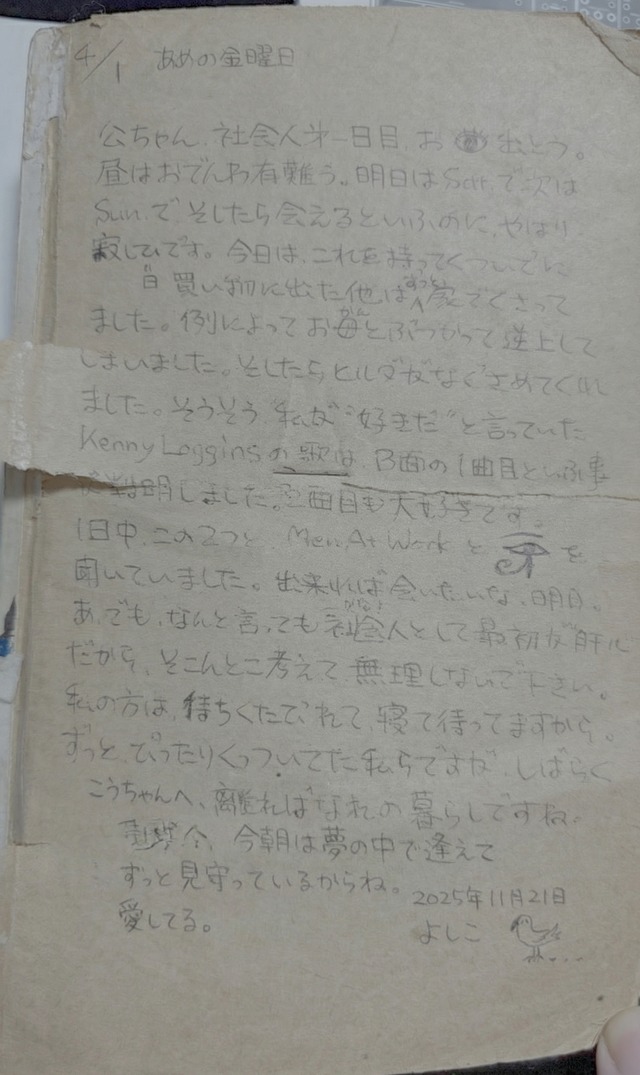 4/1 あめの金曜日
公ちゃん、社会人才一日目、お 出とう。
昼はおでんわ有難う。明日はSat.で次は
Sun.で、そしたら会えるといふのに、やはり
寂しひです。今日は、これを持ってくついでに
買い物に出た他は ずっと 家でくさって
ました。例によってお母とぶつかって逆上して
しまいました。そしたらヒルダがなぐさめてくれ
ました。そうそう、私が“好きだ”と言っていた
Kenny Logginsの歌は、B面の1曲目といふ事
が判明しました。2曲目も大好きです。
1日中、この2つと Men At Work と を
聞いていました。出来れば会いたいな、明日。
あ、でも、なんと言っても社会人として最初が肝心
だから、そこんとこ考えて無理しないで下さい。
私の方は、待ちくたびれて、寝て待ってますから。
ずっと、ぴったりくっついてた私らですが、しばらく
こうちゃんへ、離ればなれの暮らしですね。
今、今朝は夢の中で逢えて
ずっと見守っているからね。
愛してる。
2025年11月21日
よしこ